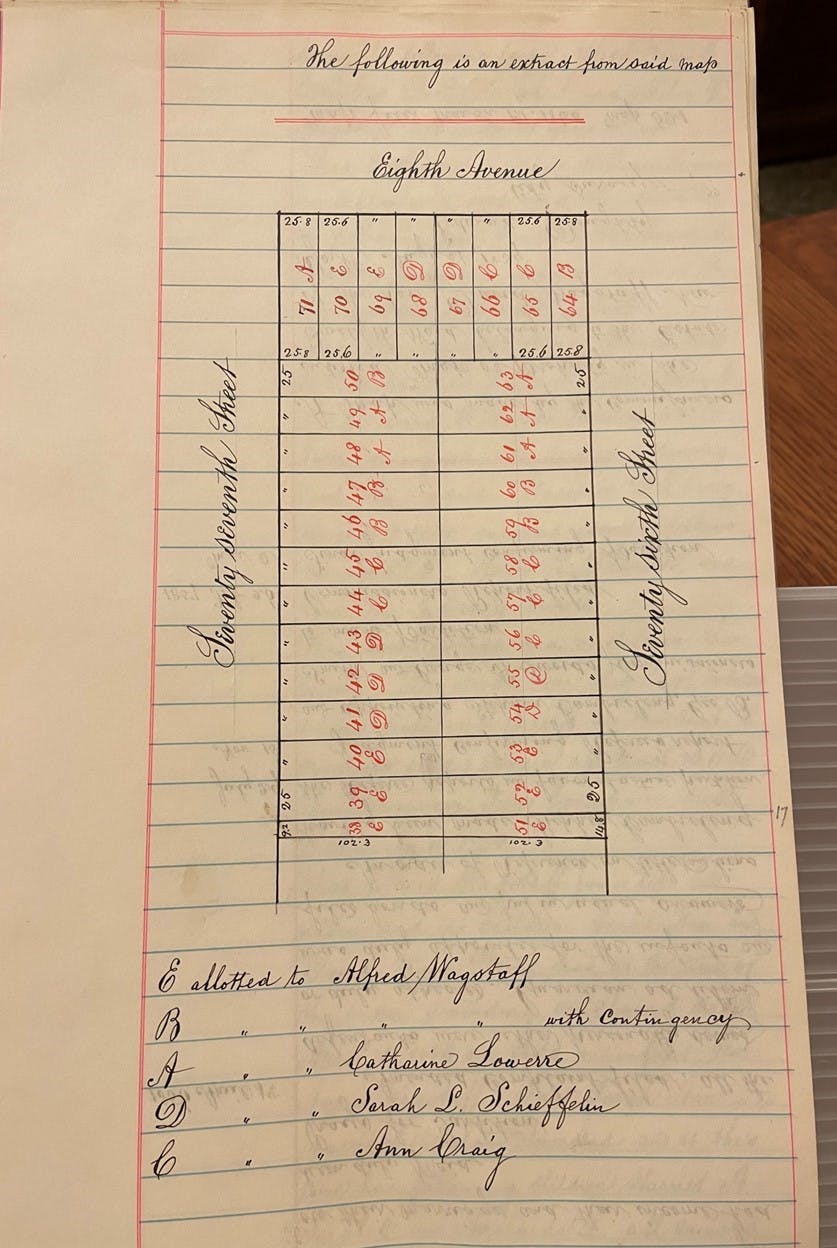 The following is an extract from said map
Eighth Avenue
25.8 25.6 " " " " 25.6 25.8
A E E D D C C B
71 70 69 68 67 66 65 64
25.8 25.6 " " " " 25.6 25.8
Seventy seventh Street
25 50 B 63 A 25
" 49 A 62 A "
" 48 A 61 A "
" 47 B 60 B "
" 46 B 59 B "
" 45 C 58 C "
" 44 C 57 C "
" 43 D 56 C "
" 42 D 55 D "
" 41 D 54 D "
" 40 E 53 E "
25 39 E 52 E 25
9.2 38 E 51 E 14.8
102.3 102.3
Seventy sixth Street
17
E allotted to Alfred Wagstaff
B " " " " with Contingency
A " " Catharine Lowerre
D " " Sarah L. Schieffelin
C " " Ann Craig